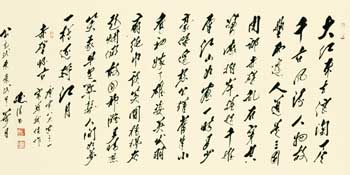 大江东去浪淘尽
千古风流人物故
垒西边人道是三国
周郎赤壁乱石穿空
惊涛拍岸卷起千堆
雪江山如画一时多少
豪杰遥想公瑾当年小
乔初嫁了雄姿英发
羽扇纶巾谈笑间樯橹
灰飞烟灭故国神游多情应
笑我早生华发人间如梦
一樽还酹江月
赤壁怀古